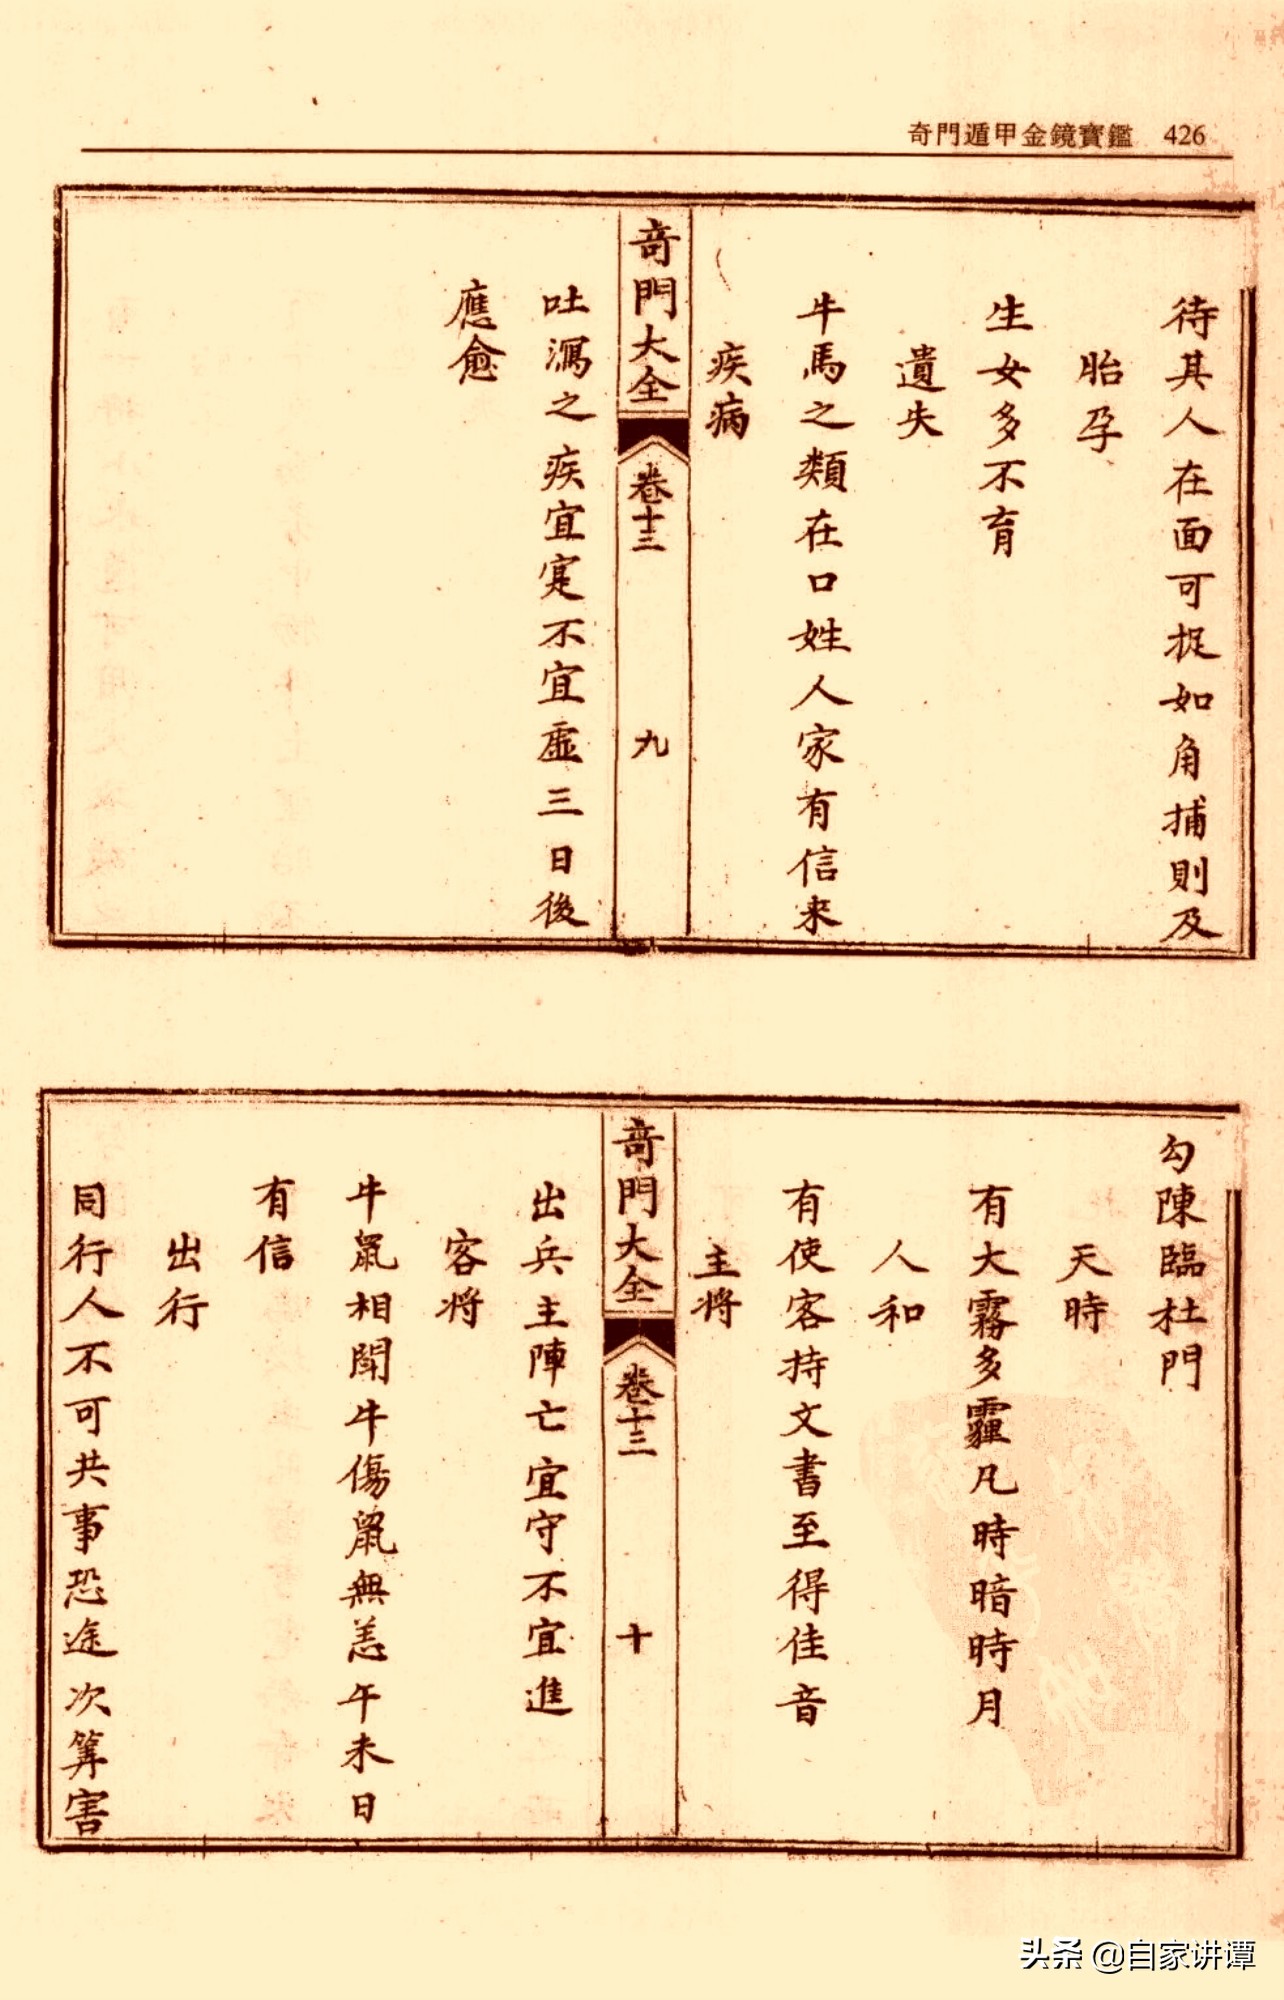 奇門遁甲金鏡寶鑑 426
待其人在面可捉如角捕則及
胎孕
生女多不育
遺失
牛馬之類在口姓人家有信来
疾病
奇門大全 卷十三 九
吐瀉之疾宜寔不宜虛三日後
應愈
勾陳臨杜門
天時
有大霧多霾凡時暗時月
人和
有使客持文書至得佳音
主将
奇門大全 卷十三 十
出兵主陣亡宜守不宜進
客将
牛鼠相鬪牛傷鼠無恙午未日
有信
出行
同行人不可共事恐途次筭害
头条 @自家讲谭